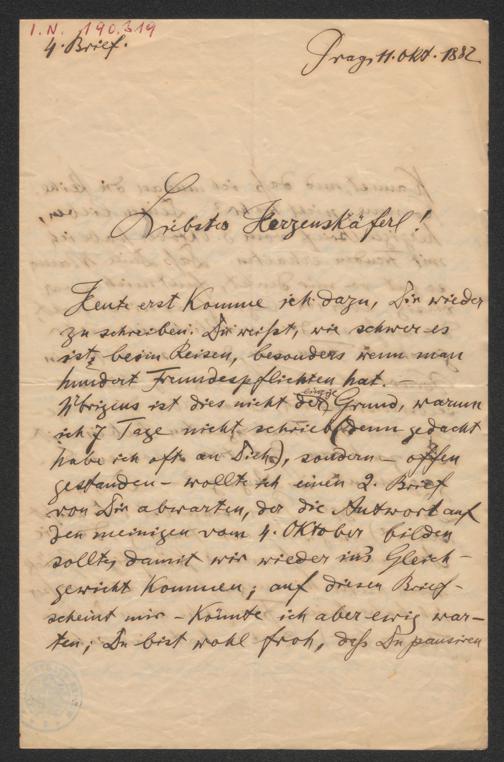 I.N. 190.319
4. Brief.
Prag, 11. Okt. 1882
Liebstes Herzenskäferl!
Heute erst komme ich dazu, Dir wieder
zu schreiben. Du weißt, wie schwer es
ist, beim Reisen, besonders wenn man
hundert Freundespflichten hat. —
Übrigens ist dies nicht der einzige Grund, warum
ich 7 Tage nicht schrieb (denn gedacht
habe ich oft an Dich), sondern – offen
gestanden – wollte ich einen 2. Brief
von Dir abwarten, der die Antwort auf
den meinigen vom 4. Oktober bilden
sollte, damit wir wieder in's Gleich-
gewicht kommen; auf diesen Brief –
scheint mir – könnte ich aber ewig war-
ten; Du bist wohl froh, daß Du pausiren